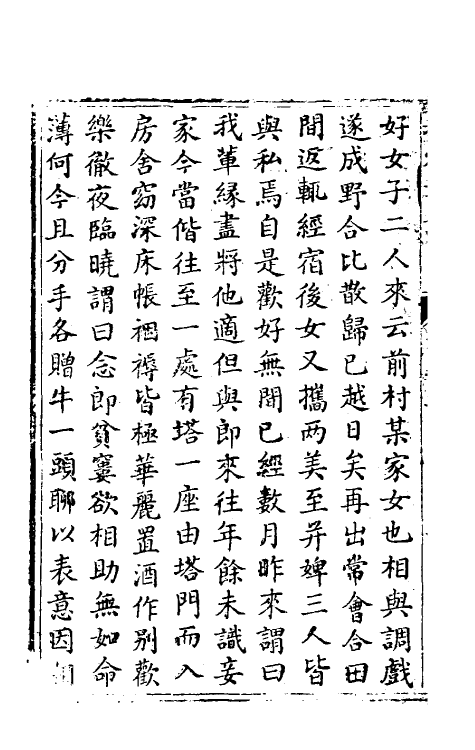 好女子二人來云前村某家女也相與調戲
遂成野合比散歸已越日矣再出常會合田
間返輒經宿後女又攜兩美至并婢三人皆
與私焉自是歡好無間已經數月昨來謂曰
我輩緣盡將他適但與郎來往年餘未識妾
家今當偕往至一處有塔一座由塔門而入
房舍窈深床帳裀褥皆極華麗置酒作別歡
樂徹夜臨曉謂曰念郎貧窶欲相助無如命
薄何今且分手各贈牛一頭聊以表意因